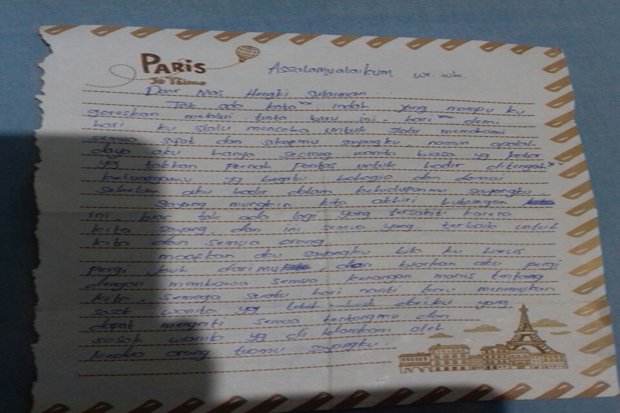 PARIS
Je T'aime
Assalamualaikum, wr. wb.
Dear Mas Hengki Sulaiman.
Tak ada kata" indah yang mampu ku
goreskan melalui tinta baru ini, hari demi
hari ku slalu mencoba untuk slalu memahami
semua sifat dan sikapmu sayangku, namun apalah
daya aku hanya seorang wanita biasa yg kotor
yg takkan pernah pantas untuk hadir ditengah"
keluargamu yg begitu bahagia dan damai
sebelum aku hadir dalam kehidupanmu sayangku.
Sayang mungkin kita akhiri hubungan
ini, biar tak ada lagi yang tersakiti karena
kita sayang, dan ini semua yang terbaik untuk
kita dan semua orang
maafkan aku sayangku bila ku harus
pergi jauh darimu dan biarkan aku pergi
dengan membawa semua kenangan manis tentang
kita, semoga suatu hari nanti kau menemukan
sosok wanita yg lebih baik dariku yang
dapat mengerti semua tentangmu dan
sosok wanita yg di idamkan oleh
kedua orang tuamu sayangku.